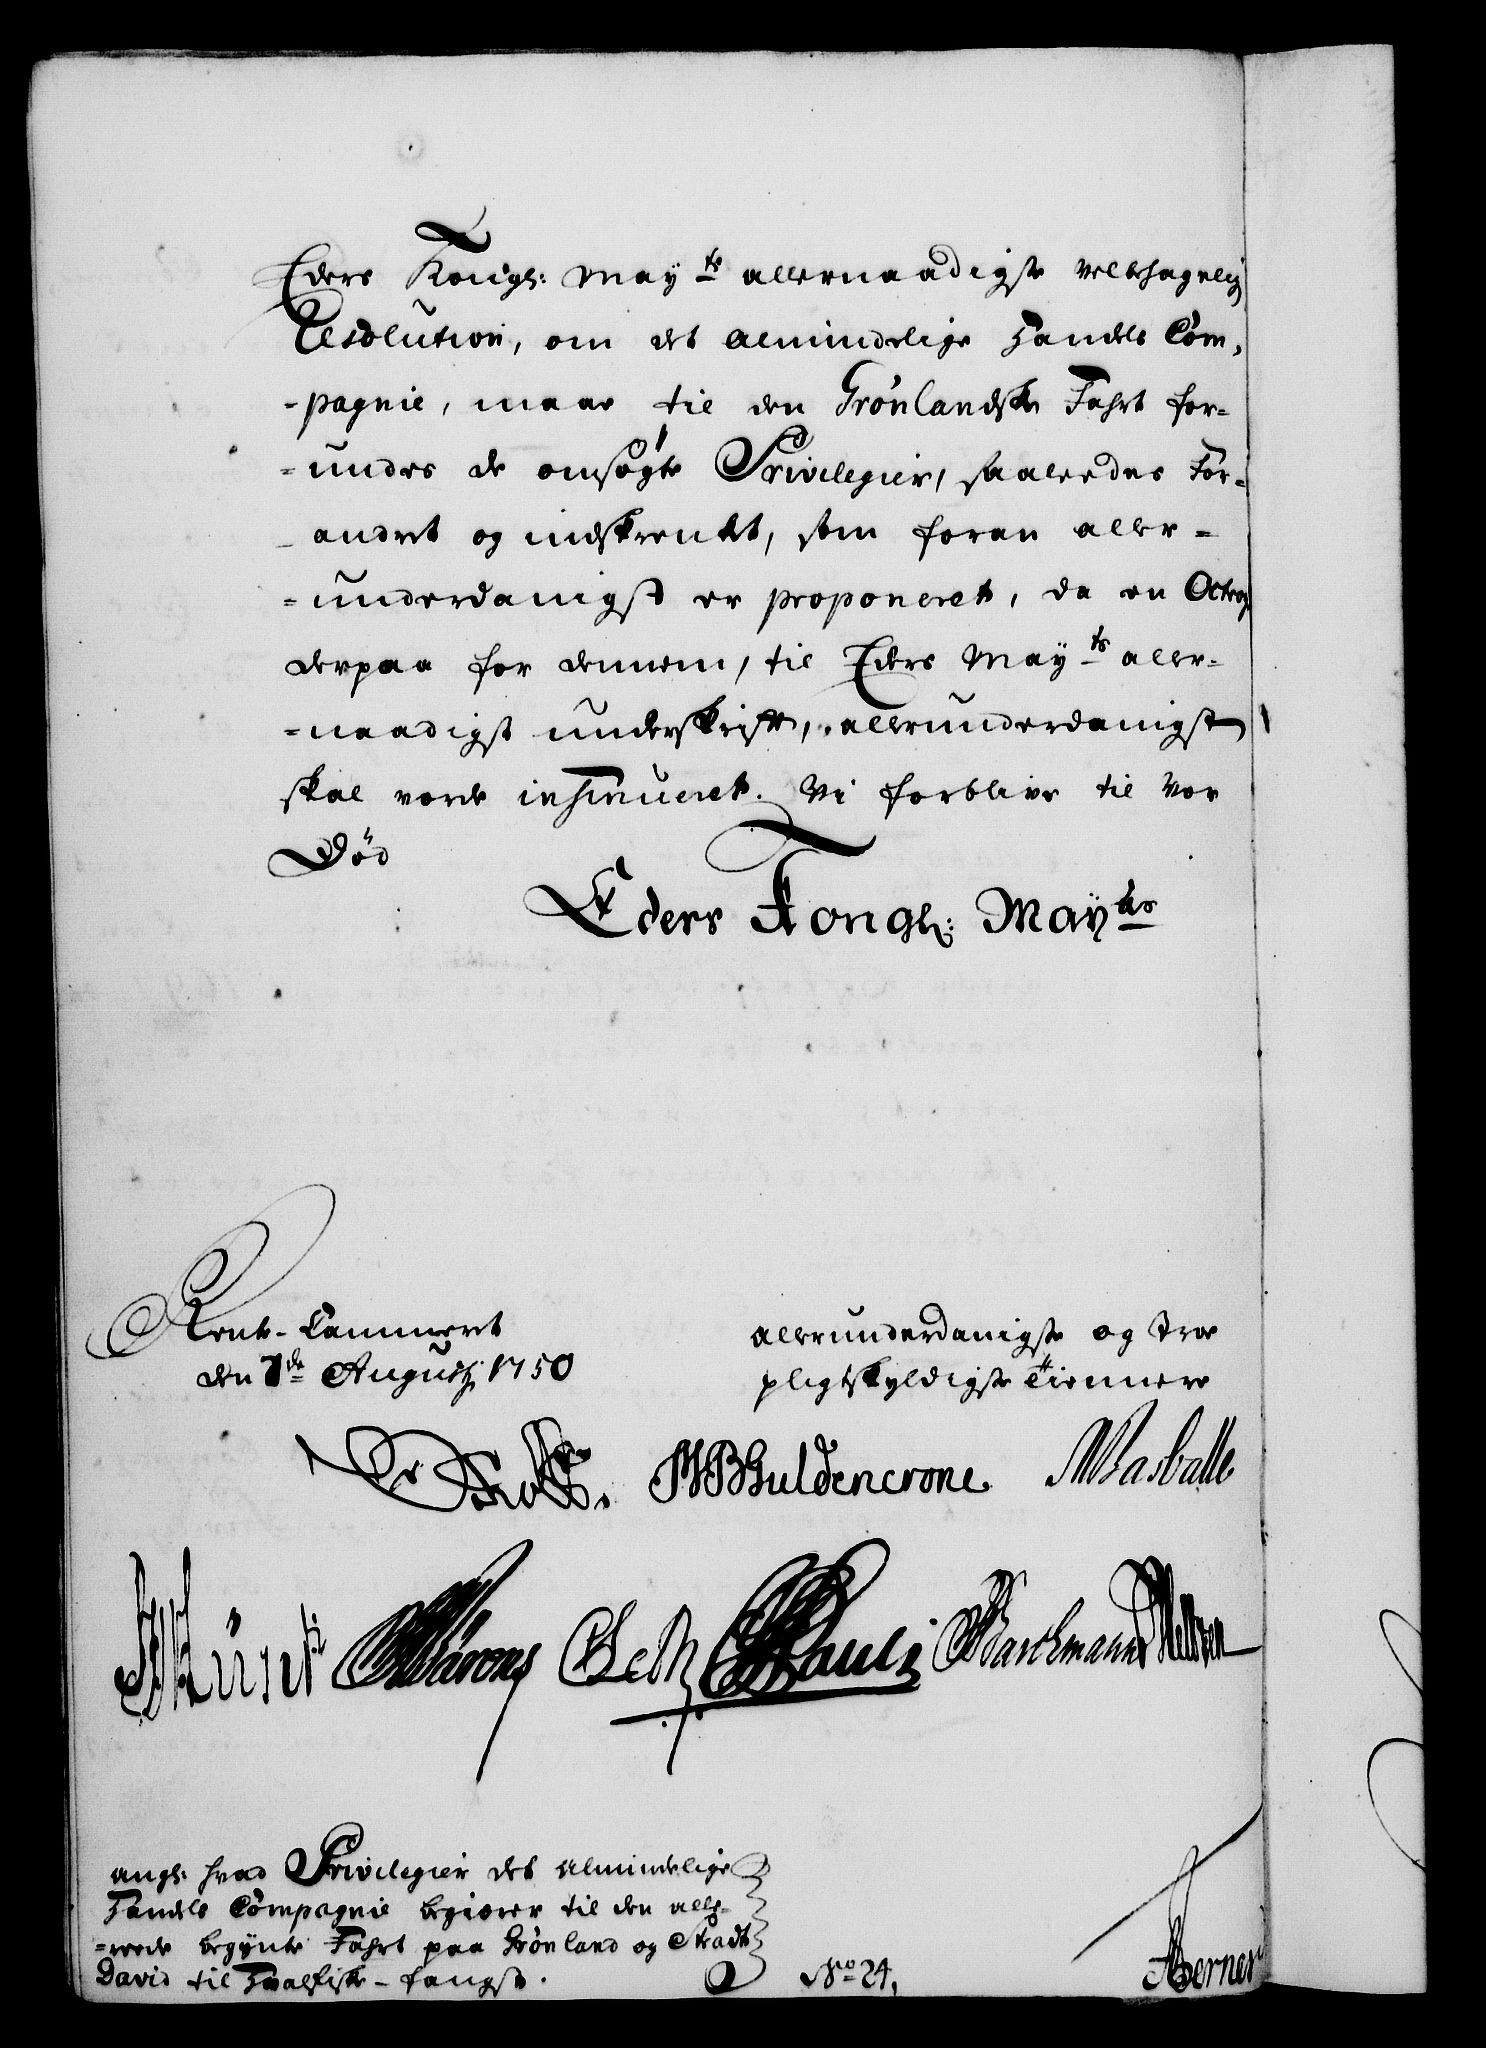 Eders Kongl: May:ts allernaadigste velbehagelig
Resolution, om det Almindelige Handels Com,
-pagnie, maae til den Grønlandske Fahrt for-
-undes de omsøgte Privilegier, saaledes For-
-andret og indskrenket, som foran aller-
-underdanigst er proponeret, da en Octroy
derpaa for dennem, til Eders May:ts aller-
-naadigst underskrift, allerunderdanigst
skal vorde insinueret. Vi forblive til vor
Død
Eders Kongl: May:ts
Rente-Cammeret
den 7de Augustj 1750
allerunderdanigste og troe
pligtskyldigste Tiennere
MBGuldencrone Rasballe
Pauli Barchmann
angl: hvad Privilegier det Almindelige
Handels Compagnie begiærer til den alle-
-rede begynte Fahrt paa Grønland og Stradt
David til Hvalfiske-fangst.
No 24,
Berner